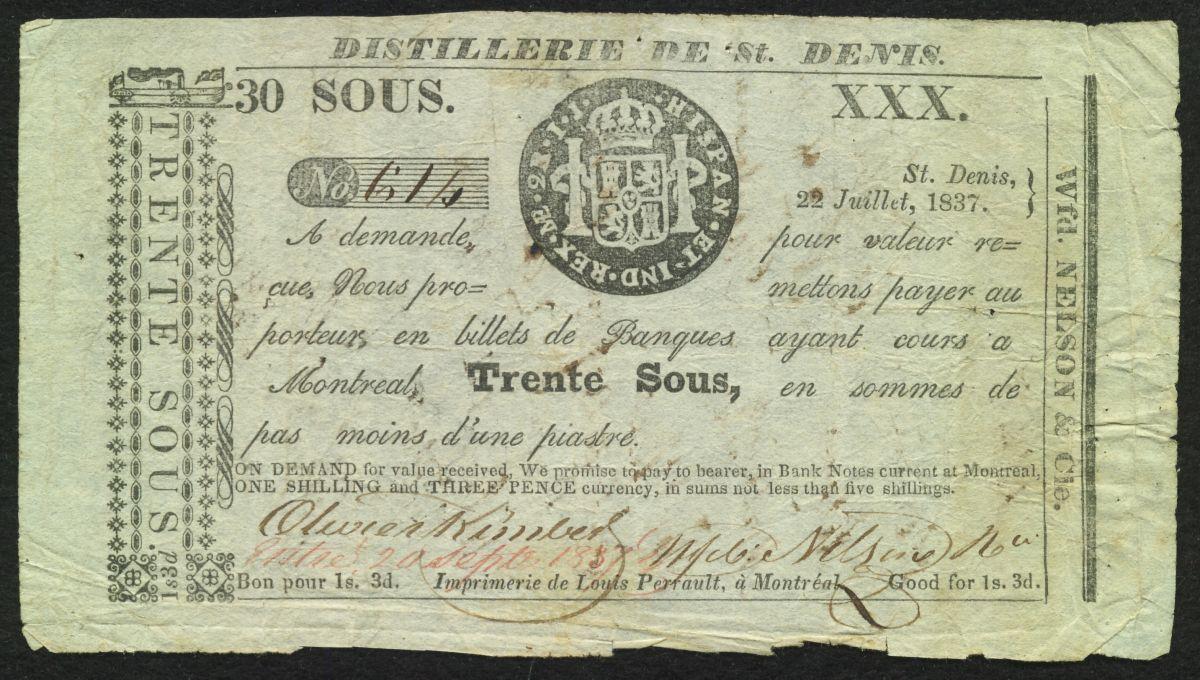 DISTILLERIE DE St. DENIS.
30 SOUS.
XXX.
TRENTE SOUS.
1s3d
HISPAN·ET·IND·REX·M
No 614
St. Denis,
22 Juillet, 1837.
A demande, pour valeur re=
çue, Nous pro= mettons payer au
porteur, en billets de Banques ayant cours a
Montreal, Trente Sous, en sommes de
pas moins d'une piastre.
ON DEMAND for value received, We promise to pay to bearer, in Bank Notes current at Montreal,
ONE SHILLING and THREE PENCE currency, in sums not less than five shillings.
Olivier Kimber
Entré, 20 Septr 1837
Wfd: Nelson & Cie
Bon pour 1s. 3d. Imprimerie de Louis Perrault, à Montréal Good for 1s. 3d.
Wfd. NELSON & Cie.